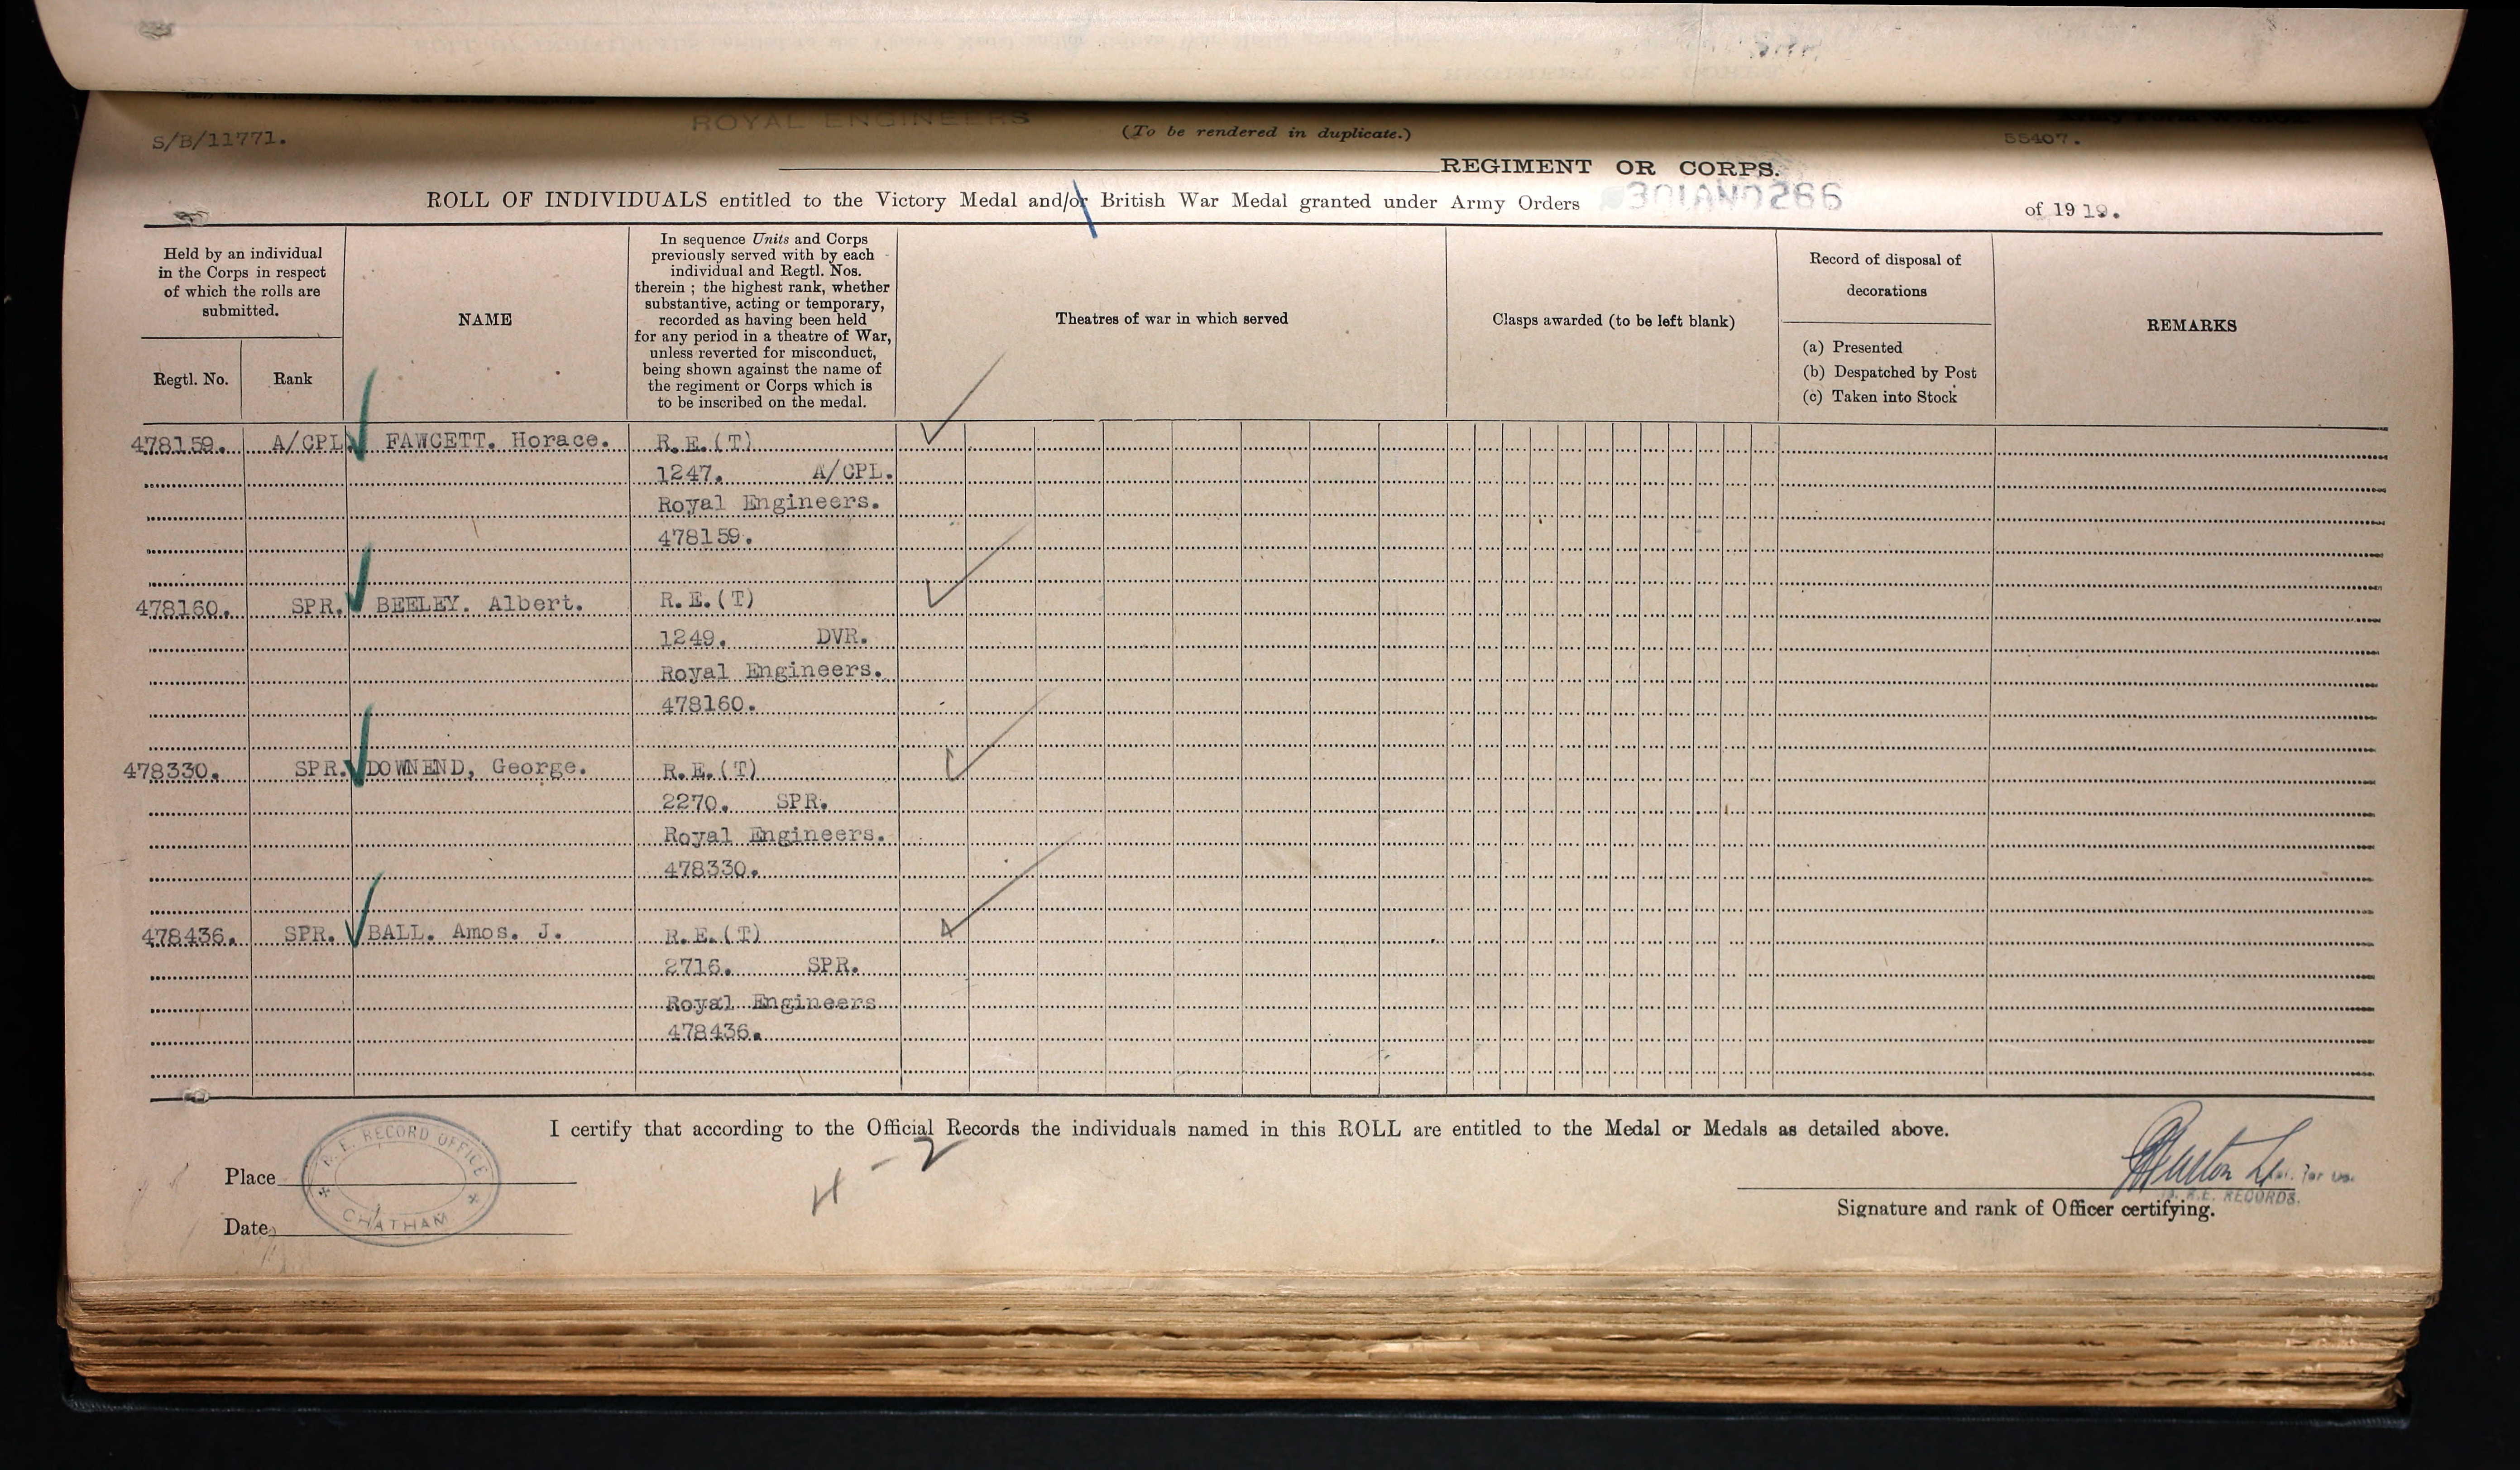 S/B/11771.
ROYAL ENGINEERS
(To be rendered in duplicate.)
55407.
REGIMENT OR CORPS.
ROLL OF INDIVIDUALS entitled to the Victory Medal and/or British War Medal granted under Army Orders 301AND266 of 1919.
Held by an individual
in the Corps in respect
of which the rolls are
submitted.
Regtl. No.
Rank
NAME
In sequence Units and Corps
previously served with by each
individual and Regtl. Nos.
therein ; the highest rank, whether
substantive, acting or temporary,
recorded as having been held
for any period in a theatre of War,
unless reverted for misconduct,
being shown against the name of
the regiment or Corps which is
to be inscribed on the medal.
Theatres of war in which served
Clasps awarded (to be left blank)
Record of disposal of
decorations
(a) Presented
(b) Despatched by Post
(c) Taken into Stock
REMARKS
478159. A/CPL FAWCETT. Horace. R.E.(T)
1247. A/CPL.
Royal Engineers.
478159.
478160. SPR. BEELEY. Albert. R.E.(T)
1249. DVR.
Royal Engineers.
478160.
478330. SPR. DOWNEND, George. R.E.(T)
2270. SPR.
Royal Engineers.
478330.
478436. SPR. BALL. Amos. J. R.E.(T)
2716. SPR.
Royal Engineers
478436.
I certify that according to the Official Records the individuals named in this ROLL are entitled to the Medal or Medals as detailed above.
4 - 2
Place
R. E. RECORD OFFICE
CHATHAM
Date
for
R.E. RECORDS.
Signature and rank of Officer certifying.